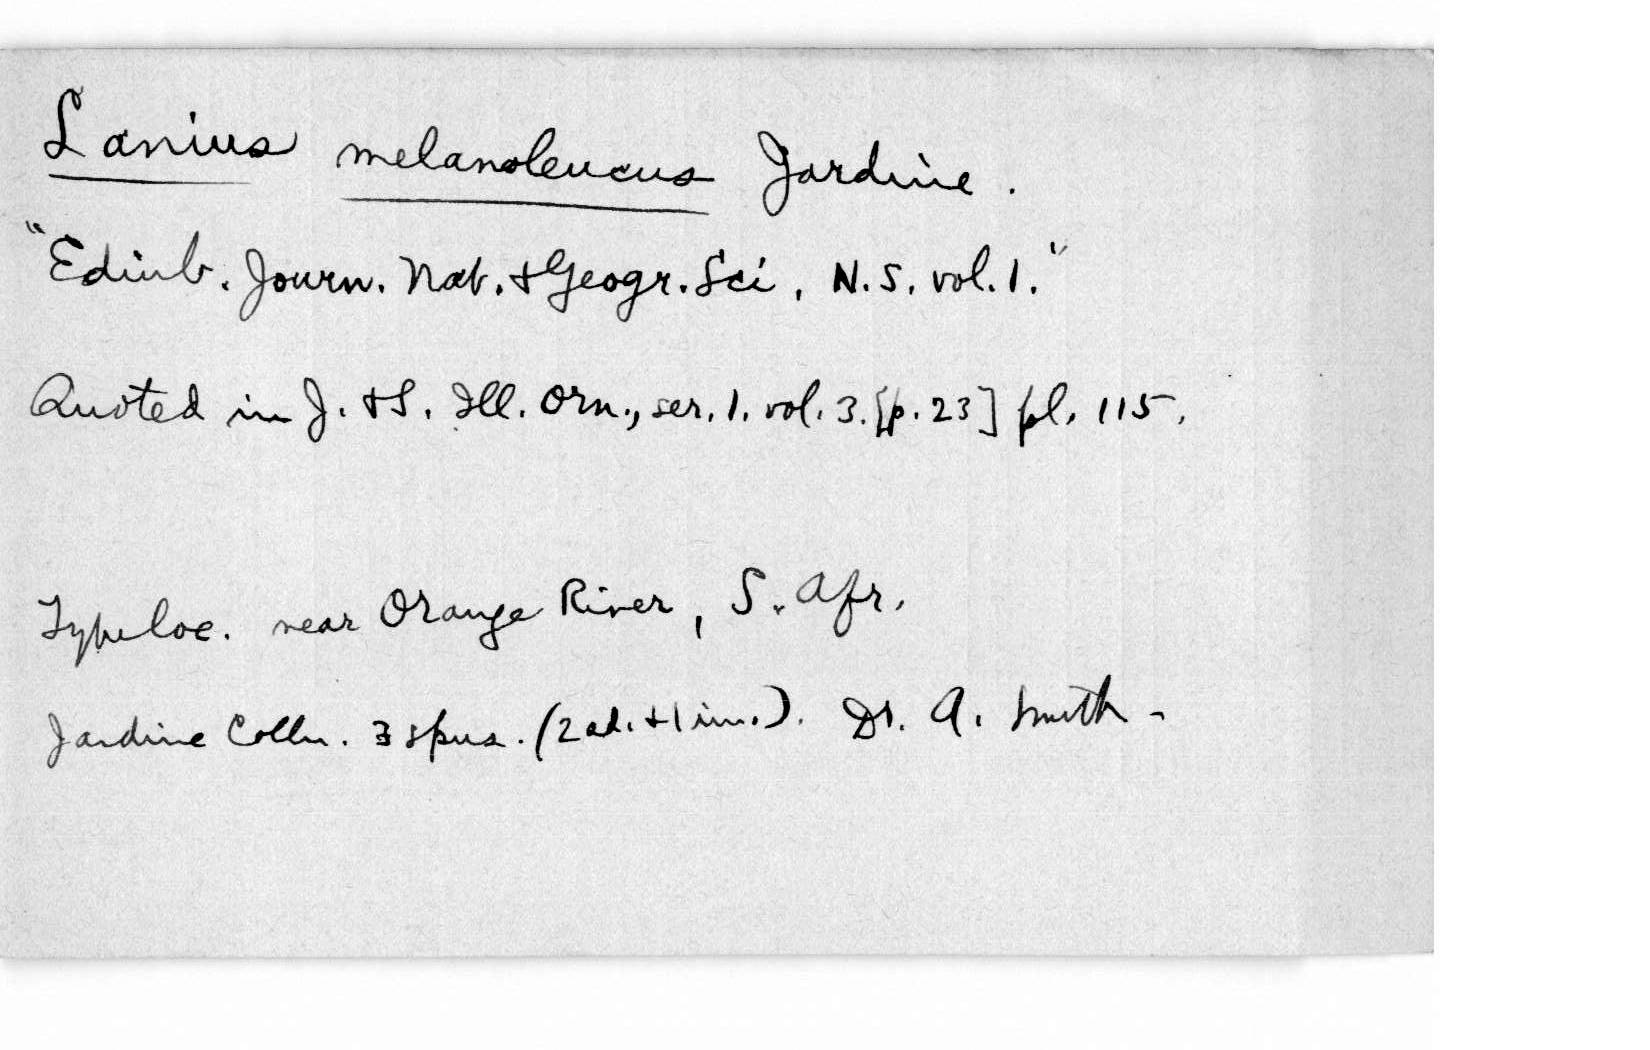 Lanius melanoleucus Jardine.
"Edinb. Journ. Nat. & Geogr. Sci, N.S. vol. 1."
Quoted in J. & S. Ill. Orn., ser. 1. vol. 3. [p. 23] pl. 115.
Type loc. near Orange River, S. Afr.
Jardine Colln. 3 spns. (2 ad. & 1 im.). Dr. A. Smith -